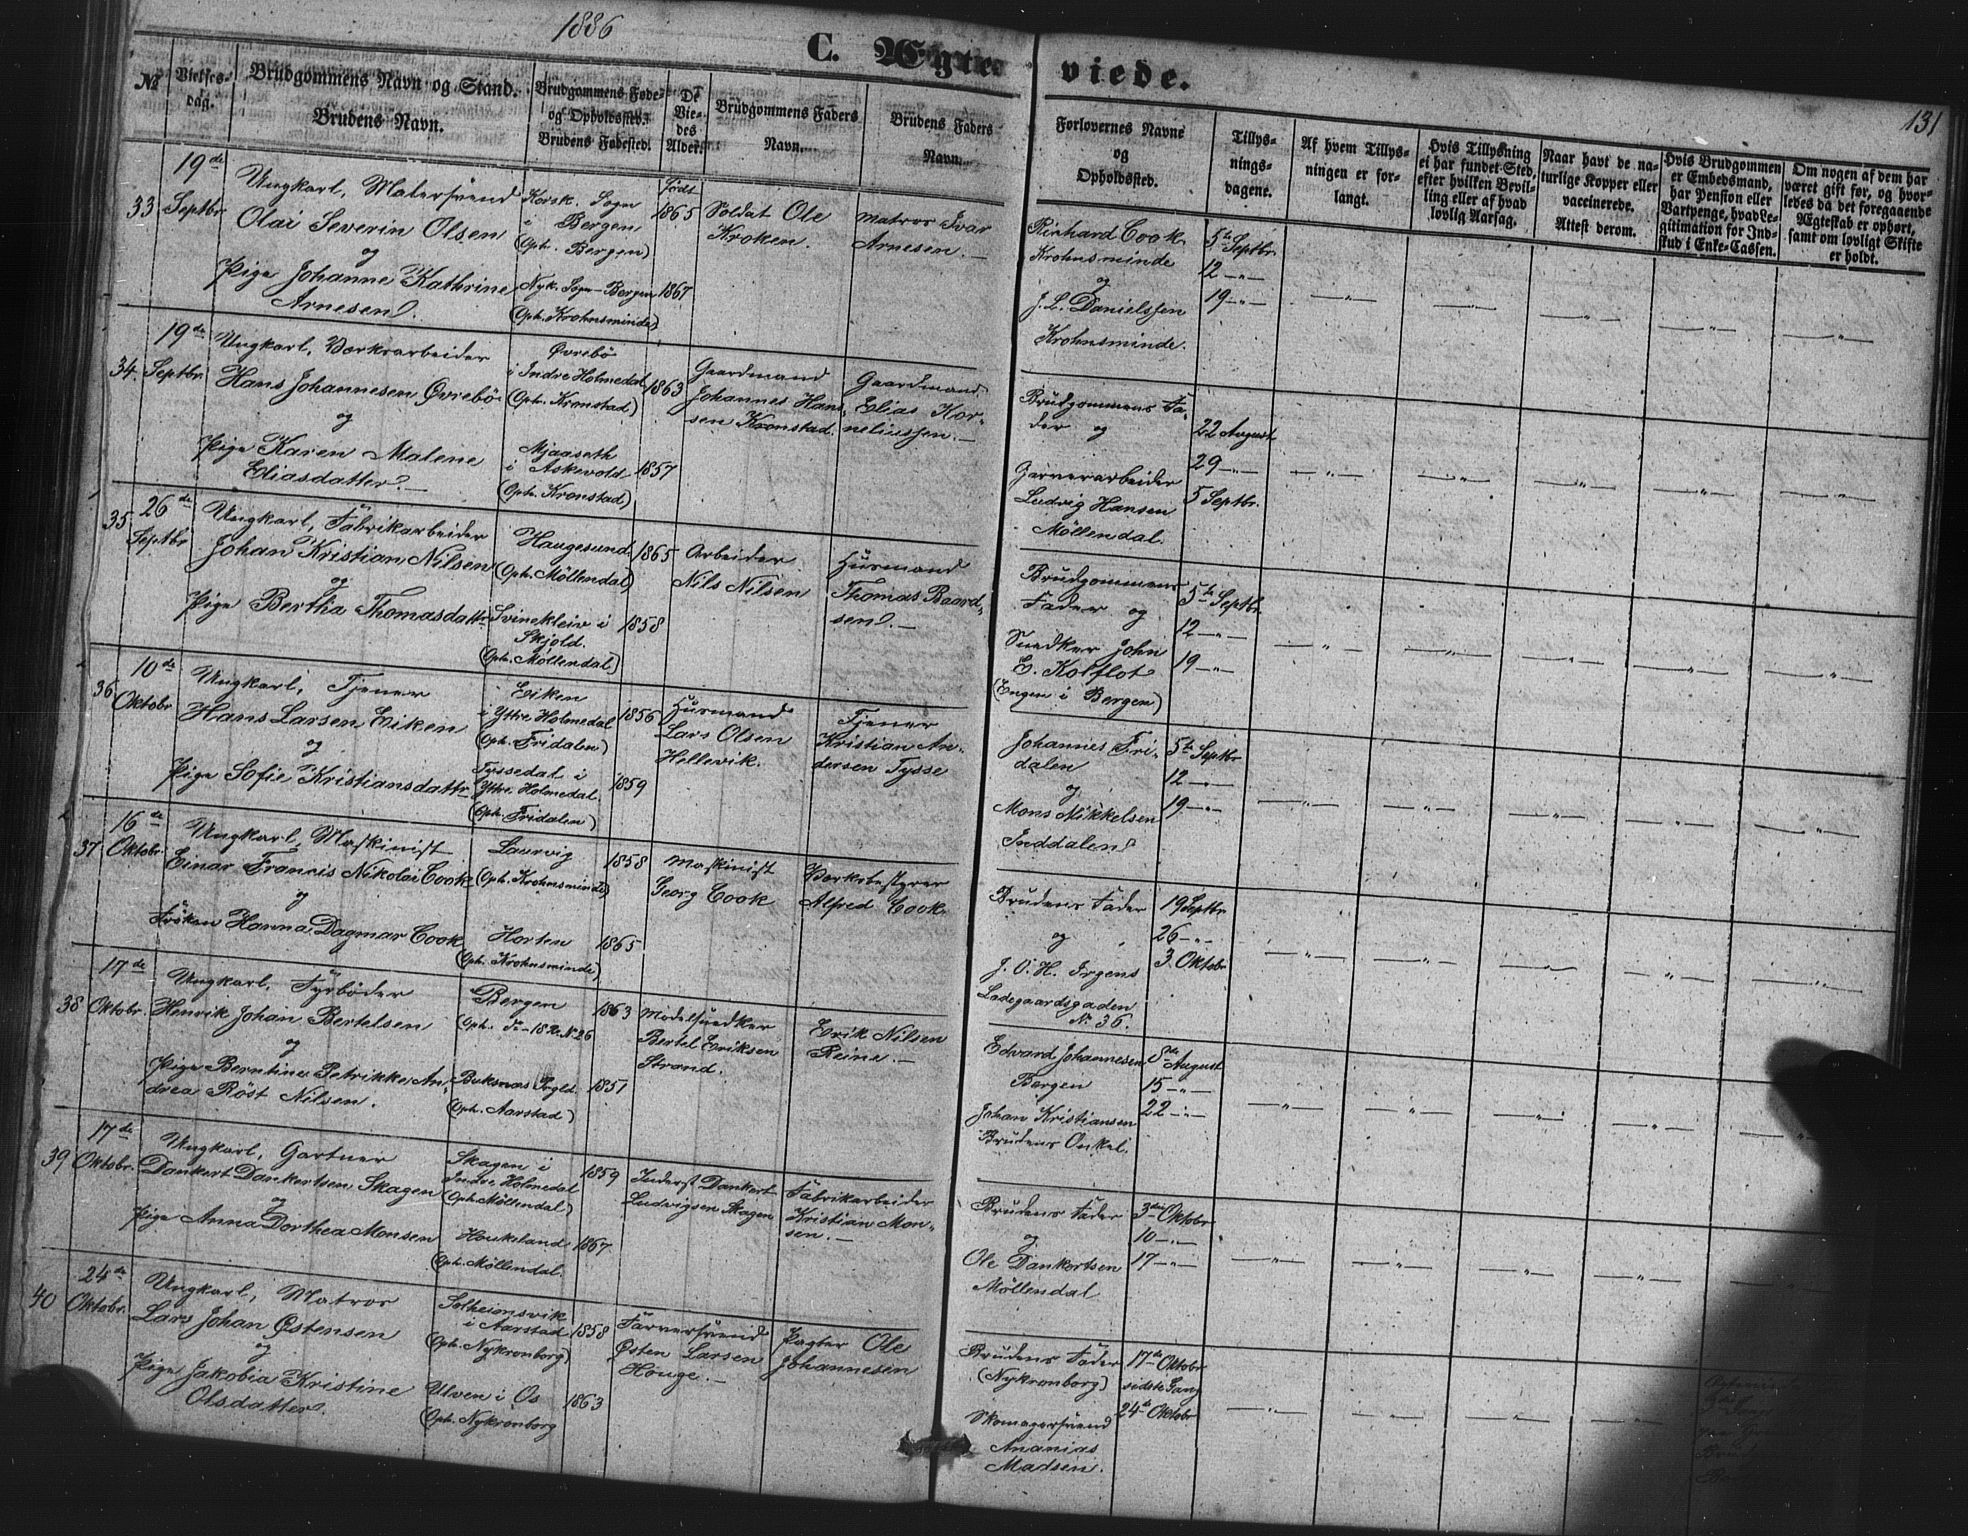 1886
C. Ægte
viede.
131
No
Vielses-
dag.
Brudgommens Navn og Stand.
Brudens Navn.
Brudgommens Føde-
og Opholdssted.
Brudens Fødested.
De
Vie-
des
Alder.
Brudgommens Faders
Navn.
Brudens Faders
Navn.
Forlovernes Navne
og
Opholdssted.
Tillys-
nings-
dagene.
Af hvem Tillys-
ningen er for-
langt.
Hvis Tillysning
ei har fundet Sted,
efter hvilken Bevil-
ling eller af hvad
lovlig Aarsag.
Naar havt de na-
turlige Kopper eller
vaccinerede.
Attest derom.
Hvis Brudgommen
er Embedsmand,
har Pension eller
Vartpenge, hvad Le-
gitimation for Ind-
skud i Enke-Cassen.
Om nogen af dem har
været gift før, og hvor-
ledes da det foregaaende
Ægteskab er ophørt,
samt om lovligt Skifte
er holdt.
33
19de
Septbr
Ungkarl, Malersvend
Olai Severin Olsen
og
Pige Johanne Kathrine
Arnesen.
Korsk. Sogn
i Bergen
(Oph. Bergen)
Nyk. Sogn - Bergen
(Oph. Krohnsminde)
født
1865
1867
Soldat Ole
Kroken.
Matros Ivar
Arnesen.
Richard Cook
Krohnsminde
og
J. L. Danielssen
Krohnsminde.
5te Septbr
12 -"-
19 -"-
34.
19de
Septbr
Ungkarl, Værksarbeider
Hans Johannesen Øvrebö
og
Pige Karen Malene
Eliasdatter.
Øvrebö
i Indre Holmedal
(Oph. Kronstad)
Mjaaseth
i Askevold
(Oph. Kronstad)
1863
1857
Gaardmand
Johannes Han-
sen Kronstad.
Gaardmand
Elias Kor-
neliussen.
Brudgommens Fa-
der og
Garverarbeider
Ludvig Hansen
Möllendal.
22 August
29 -"-
5 Septbr.
35
26de
Septbr
Ungkarl, Fabrikarbeider
Johan Kristian Nilsen
og
Pige Bertha Thomasdattr
Haugesund.
(Oph. Möllendal)
Svinekleiv i
Skjold.
(Oph. Möllendal)
1865
1858
Arbeider
Nils Nilsen
Husmand
Thomas Baard-
sen.
Brudgommens
Fader og
Snedker John
E. Kolflot
(Engen i Bergen)
5te Septbr.
12 -"-
19 -"-
36
10de
Oktobr
Ungkarl, Tjener
Hans Larsen Eiken
og
Pige Sofie Kristiansdattr
Eiken
i Ytre Holmedal
(Oph. Fridalen)
Tyssedal i
Ytre Holmedal.
(Oph. Fridalen)
1856
1859
Husmand
Lars Olsen
Hellevik.
Tjener
Kristian An-
dersen Tysse
Johannes Fri-
dalen
og
Mons Mikkelsen
Inddalen
5te Septbr
12 -"-
19 -"-
37
16de
Oktobr
Ungkarl, Maskinist
Einar Francis Nikolai Cook
og
Fröken Hanna Dagmar Cook
Laurvig
(Oph. Krohnsminde)
Horten
(Oph. Krohnsminde)
1858
1865
Maskinist
Georg Cook
Værksbestyrer
Alfred Cook.
Brudens Fader
og
J. O. H. Irgens
Ladegaardsgaden
No 36.
19 Septbr
26 -"-
3. Oktobr
38
17de
Oktobr.
Ungkarl, Fyrböder
Henrik Johan Bertelsen
og
Pige Berntine Petrikke An-
drea Röst Nilsen.
Bergen
Buksnæs Prgld.
(Oph. Aarstad)
1863
1851
Modelsnedker
Bertel Eriksen
Strand.
Erik Nilsen
Reine.
Edvard Johannesen
Bergen
Johan Kristiansen
Brudens Onkel.
8de August
15 -"-
22 -"-
39
17de
Oktobr.
Ungkarl, Gartner
Dankert Dankertsen Skagen
og
Pige Anna Dorthea Monsen
Skagen i
Indre Holmedal
(Oph. Möllendal)
Houkeland
(Oph. Möllendal.
1859
1867
Inderst Dankert
Ludvigsen Skagen
Fabrikarbeider
Kristian Mon-
sen.
Brudens Fader
og
Ole Dankertsen
Möllendal
3die Oktobr
10 -"-
17 -"-
40
24de
Oktobr.
Ungkarl, Matros
Lars Johan Østensen
og
Pige Jakobia Kristine
Olsdatter.
Solheimsvik
i Aarstad
(Oph. Nykronborg)
Ulven i Os
(Oph. Nykronborg
1858
1863
Farversvend
Østen Larsen
Houge.
Pagter Ole
Johannesen
Brudens Fader
(Nykronborg)
Skomagersvend
Ananias
Madsen.
17de Oktobr
sidste Gang
24de Oktobr